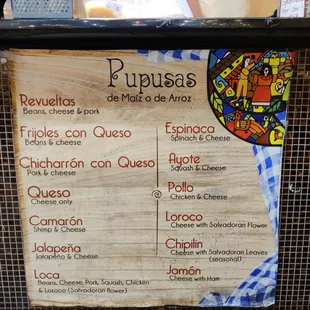 Pupusas
de Maíz o de Arroz
Revueltas
Beans, cheese & pork
Frijoles con Queso
Beans & cheese
Chicharrón con Queso
Pork & cheese
Queso
Cheese only
Camarón
Shrimp & Cheese
Jalapeña
Jalapeño & Cheese
Loca
Beans, Cheese, Pork, Squash, Chicken
& Loroco (Salvadoran flower)
Espinaca
Spinach & Cheese
Ayote
Squash & Cheese
Pollo
Chicken & Cheese
Loroco
Cheese with Salvadoran Flower
Chipilín
Cheese with Salvadoran Leaves
(seasonal)
Jamón
Cheese with Ham